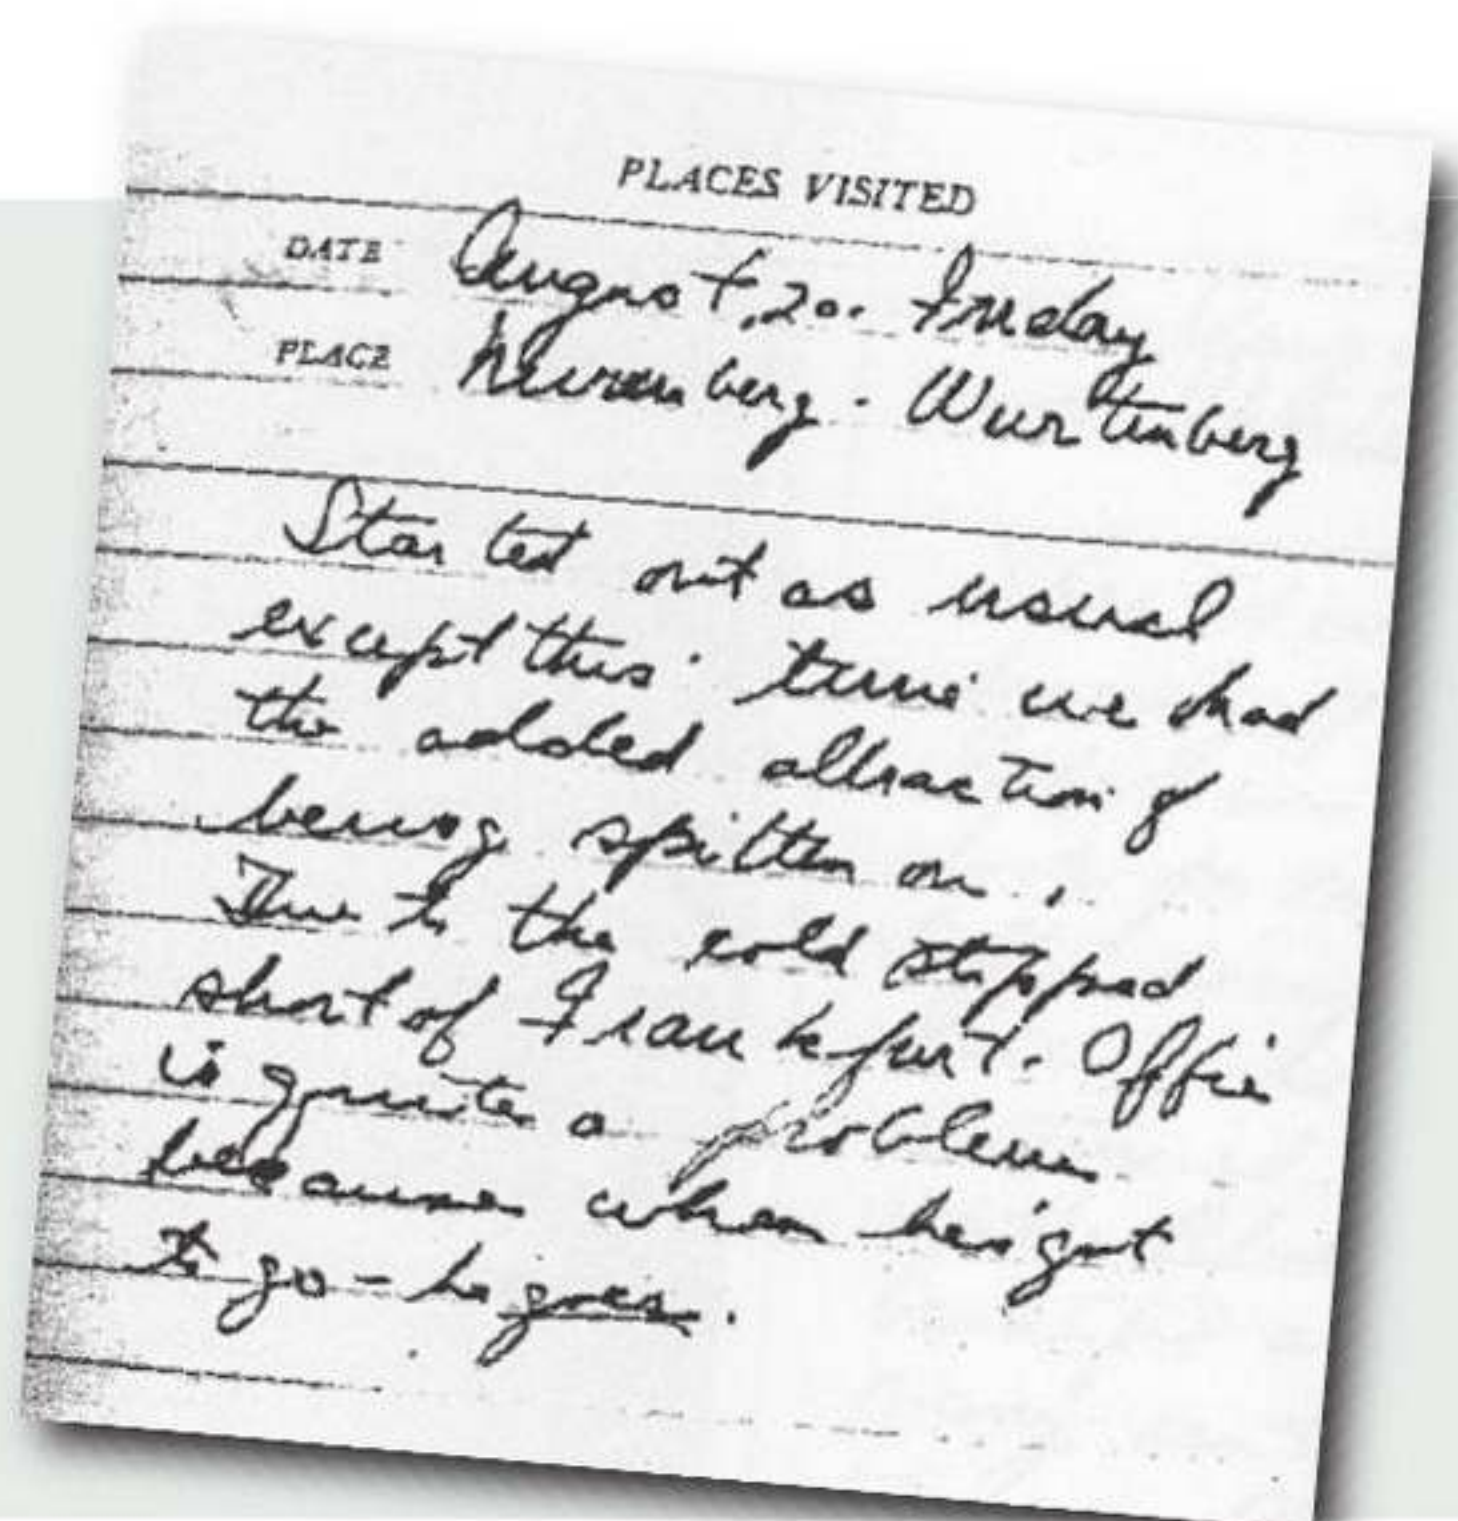 PLACES VISITED
DATE August, 20. Friday
PLACE Nuremberg. Wurtenberg
Started out as usual
except this time we had
the added attraction of
being spitten on.
Due to the cold stopped
short of Frankfurt. Offie
is quite a problem
because when he's got
to go - he goes.